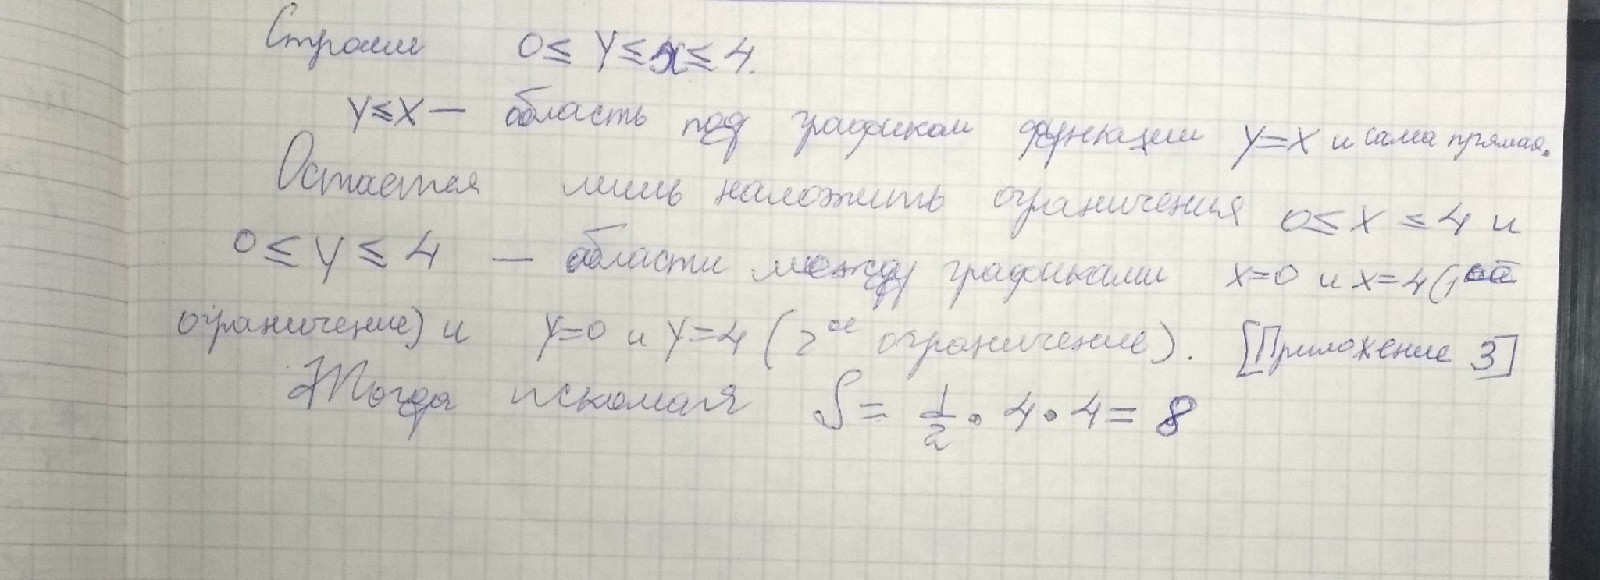 Строим 0 ≤ y ≤ x ≤ 4.
y ≤ x — область под графиком функции y = x и сама прямая.
Остается лишь наложить ограничения 0 ≤ x ≤ 4 и
0 ≤ y ≤ 4 — области между графиками x = 0 и x = 4 (1ое
ограничение) и y = 0 и y = 4 (2ое ограничение). [Приложение 3]
Тогда искомая S = 1/2 · 4 · 4 = 8